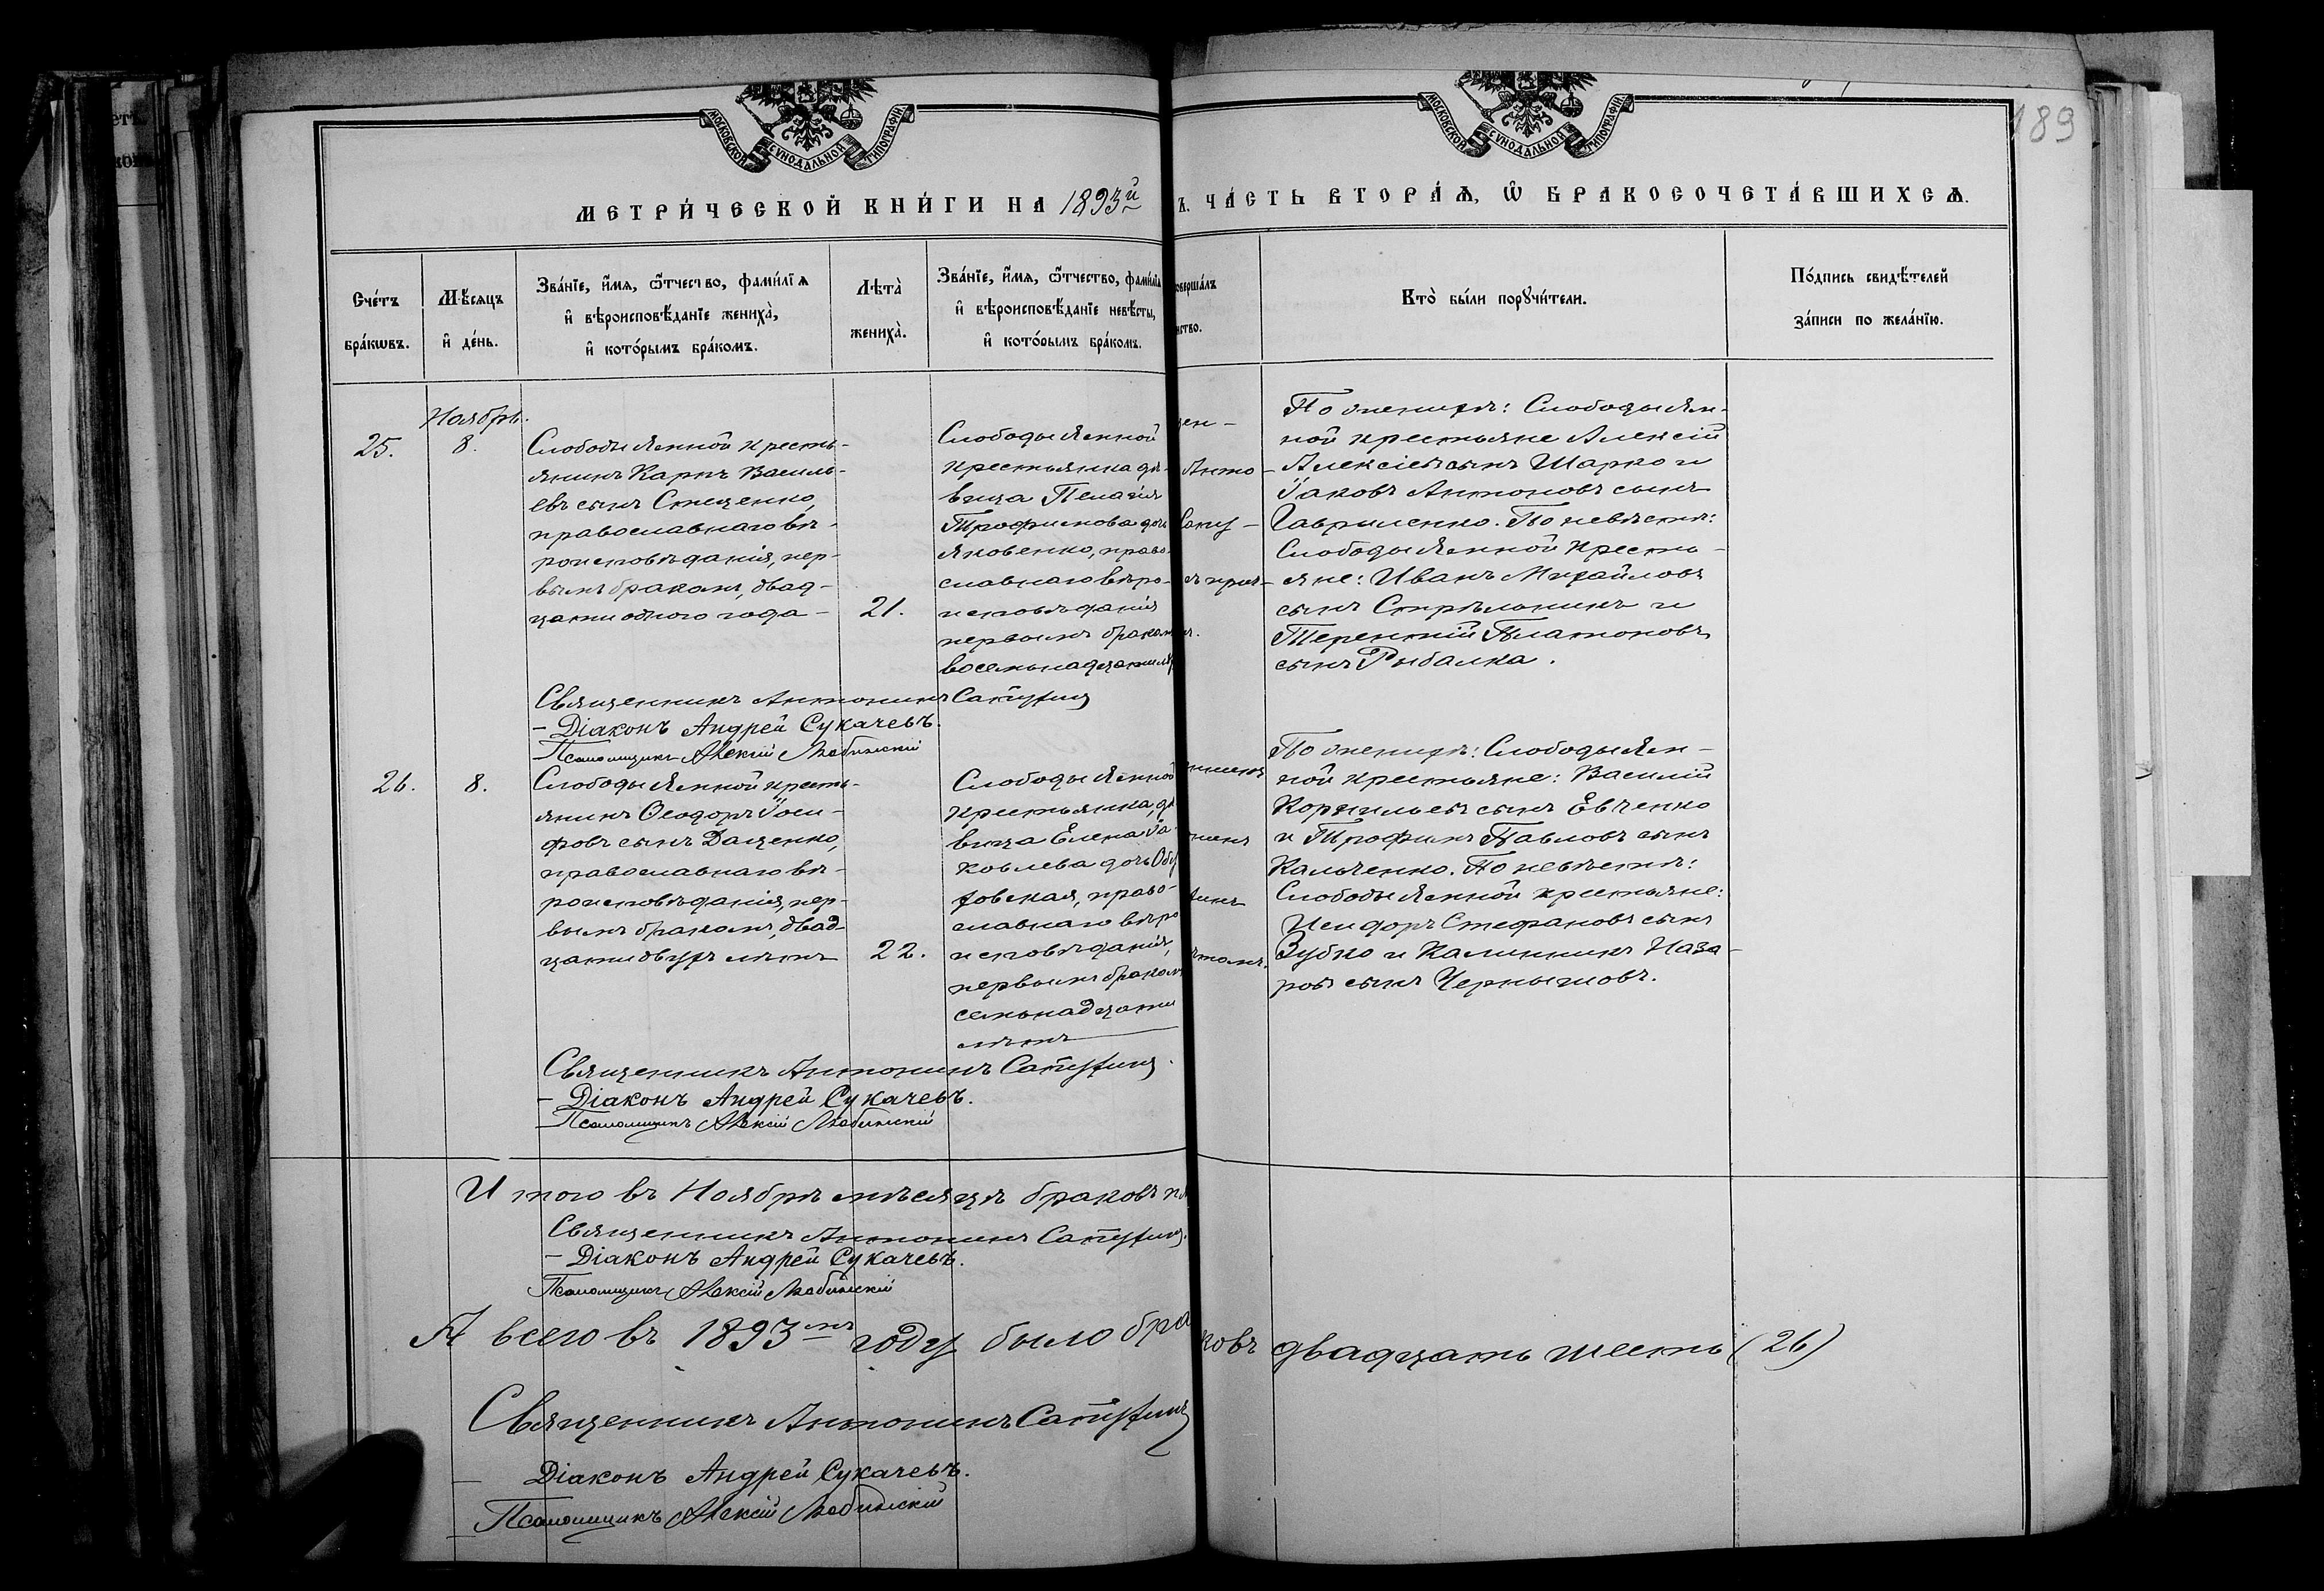 МОСКОВСКОЙ СѴНОДАЛЬНОЙ ТИПОГРАФІИ
МОСКОВСКОЙ СѴНОДАЛЬНОЙ ТИПОГРАФІИ
189
МЕТРИ́ЧЕСКОЙ КНИ́ГИ НА 1893й
Ъ. ЧА́СТЬ ВТОРА́Ѧ, Ѽ БРАКОСОЧЕТА́ВШИХСѦ.
Сче́тъ
бра́кѡвъ.
Мѣ́сяцъ
и҆ де́нь.
Зва́нїе, и҆́мѧ, ѻ҆́тчество, фами́лїѧ
и҆ вѣроисповѣ́данїе жениха̀,
и҆ кото́рымъ бра́комъ.
Лѣта̀
жениха̀.
Зва́нїе, и҆́мѧ, ѻ҆́тчество, фами́лїѧ
и҆ вѣроисповѣ́данїе невѣ́сты,
и҆ кото́рымъ бра́комъ.
овершáлъ
нство.
Кто̀ бы́ли порꙋчи́тели.
По́дпись свидѣ́телей
за́писи по жела́нїю.
25.
Ноябрь.
8.
Слободы Ямной кресть-
янинъ Карпъ Василь-
евъ сынъ Стеценко,
православнаго вѣ-
роисповѣданія, пер-
вымъ бракомъ, двад-
цати одного года -
21.
Слободы Ямной
крестьянка дѣ-
вица Пелагія
Трофимова дочь
Яковенко, право-
славнаго вѣро-
исповѣданія
первымъ бракомъ
восемнадцати
щен-
Анто-
По женихѣ: Слободы Ям-
ной крестьяне Алексій
Алексіевъ сынъ Шарко и
Іаковъ Антоновъ сынъ
Гавриленко. По невѣстѣ:
Слободы Ямной кресть-
яне: Иванъ Михайловъ
сынъ Стрѣльникъ и
Терентій Платоновъ
сынъ Рыбалка.
Священникъ Антонинъ
- Діаконъ Андрей Сукачевъ.
Псаломщикъ Алексій
26.
8.
Слободы Ямной кресть-
янинъ Ѳеодоръ Іоси-
фовъ сынъ Даценко,
православнаго вѣ-
роисповѣданія, пер-
вымъ бракомъ, двад-
цати двухъ лѣтъ
22.
Слободы Ямной
крестьянка, дѣ-
вица Елена Іа-
ковлева дочь
православнаго вѣро
исповѣданія,
первымъ бракомъ
семнадцати
лѣтъ
По женихѣ: Слободы Ям-
ной крестьяне: Василій
Корнильевъ сынъ Евченко
и Трофимъ Павловъ сынъ
Кальченко. По невѣстѣ:
Слободы Ямной крестьяне:
Исидоръ Стефановъ сынъ
Зубко и Калинникъ Наза-
ровъ сынъ Чернышовъ.
Священникъ Антонинъ
- Діаконъ Андрей Сукачевъ.
Псаломщикъ Алексій
Итого въ Ноябрѣ мѣсяцѣ браковъ
Священникъ Антонинъ
- Діаконъ Андрей Сукачевъ.
Псаломщикъ Алексій
А всего въ 1893мъ году было браковъ двадцать шесть (26)
Священникъ Антонинъ
Діаконъ Андрей Сукачевъ.
Псаломщикъ Алексій